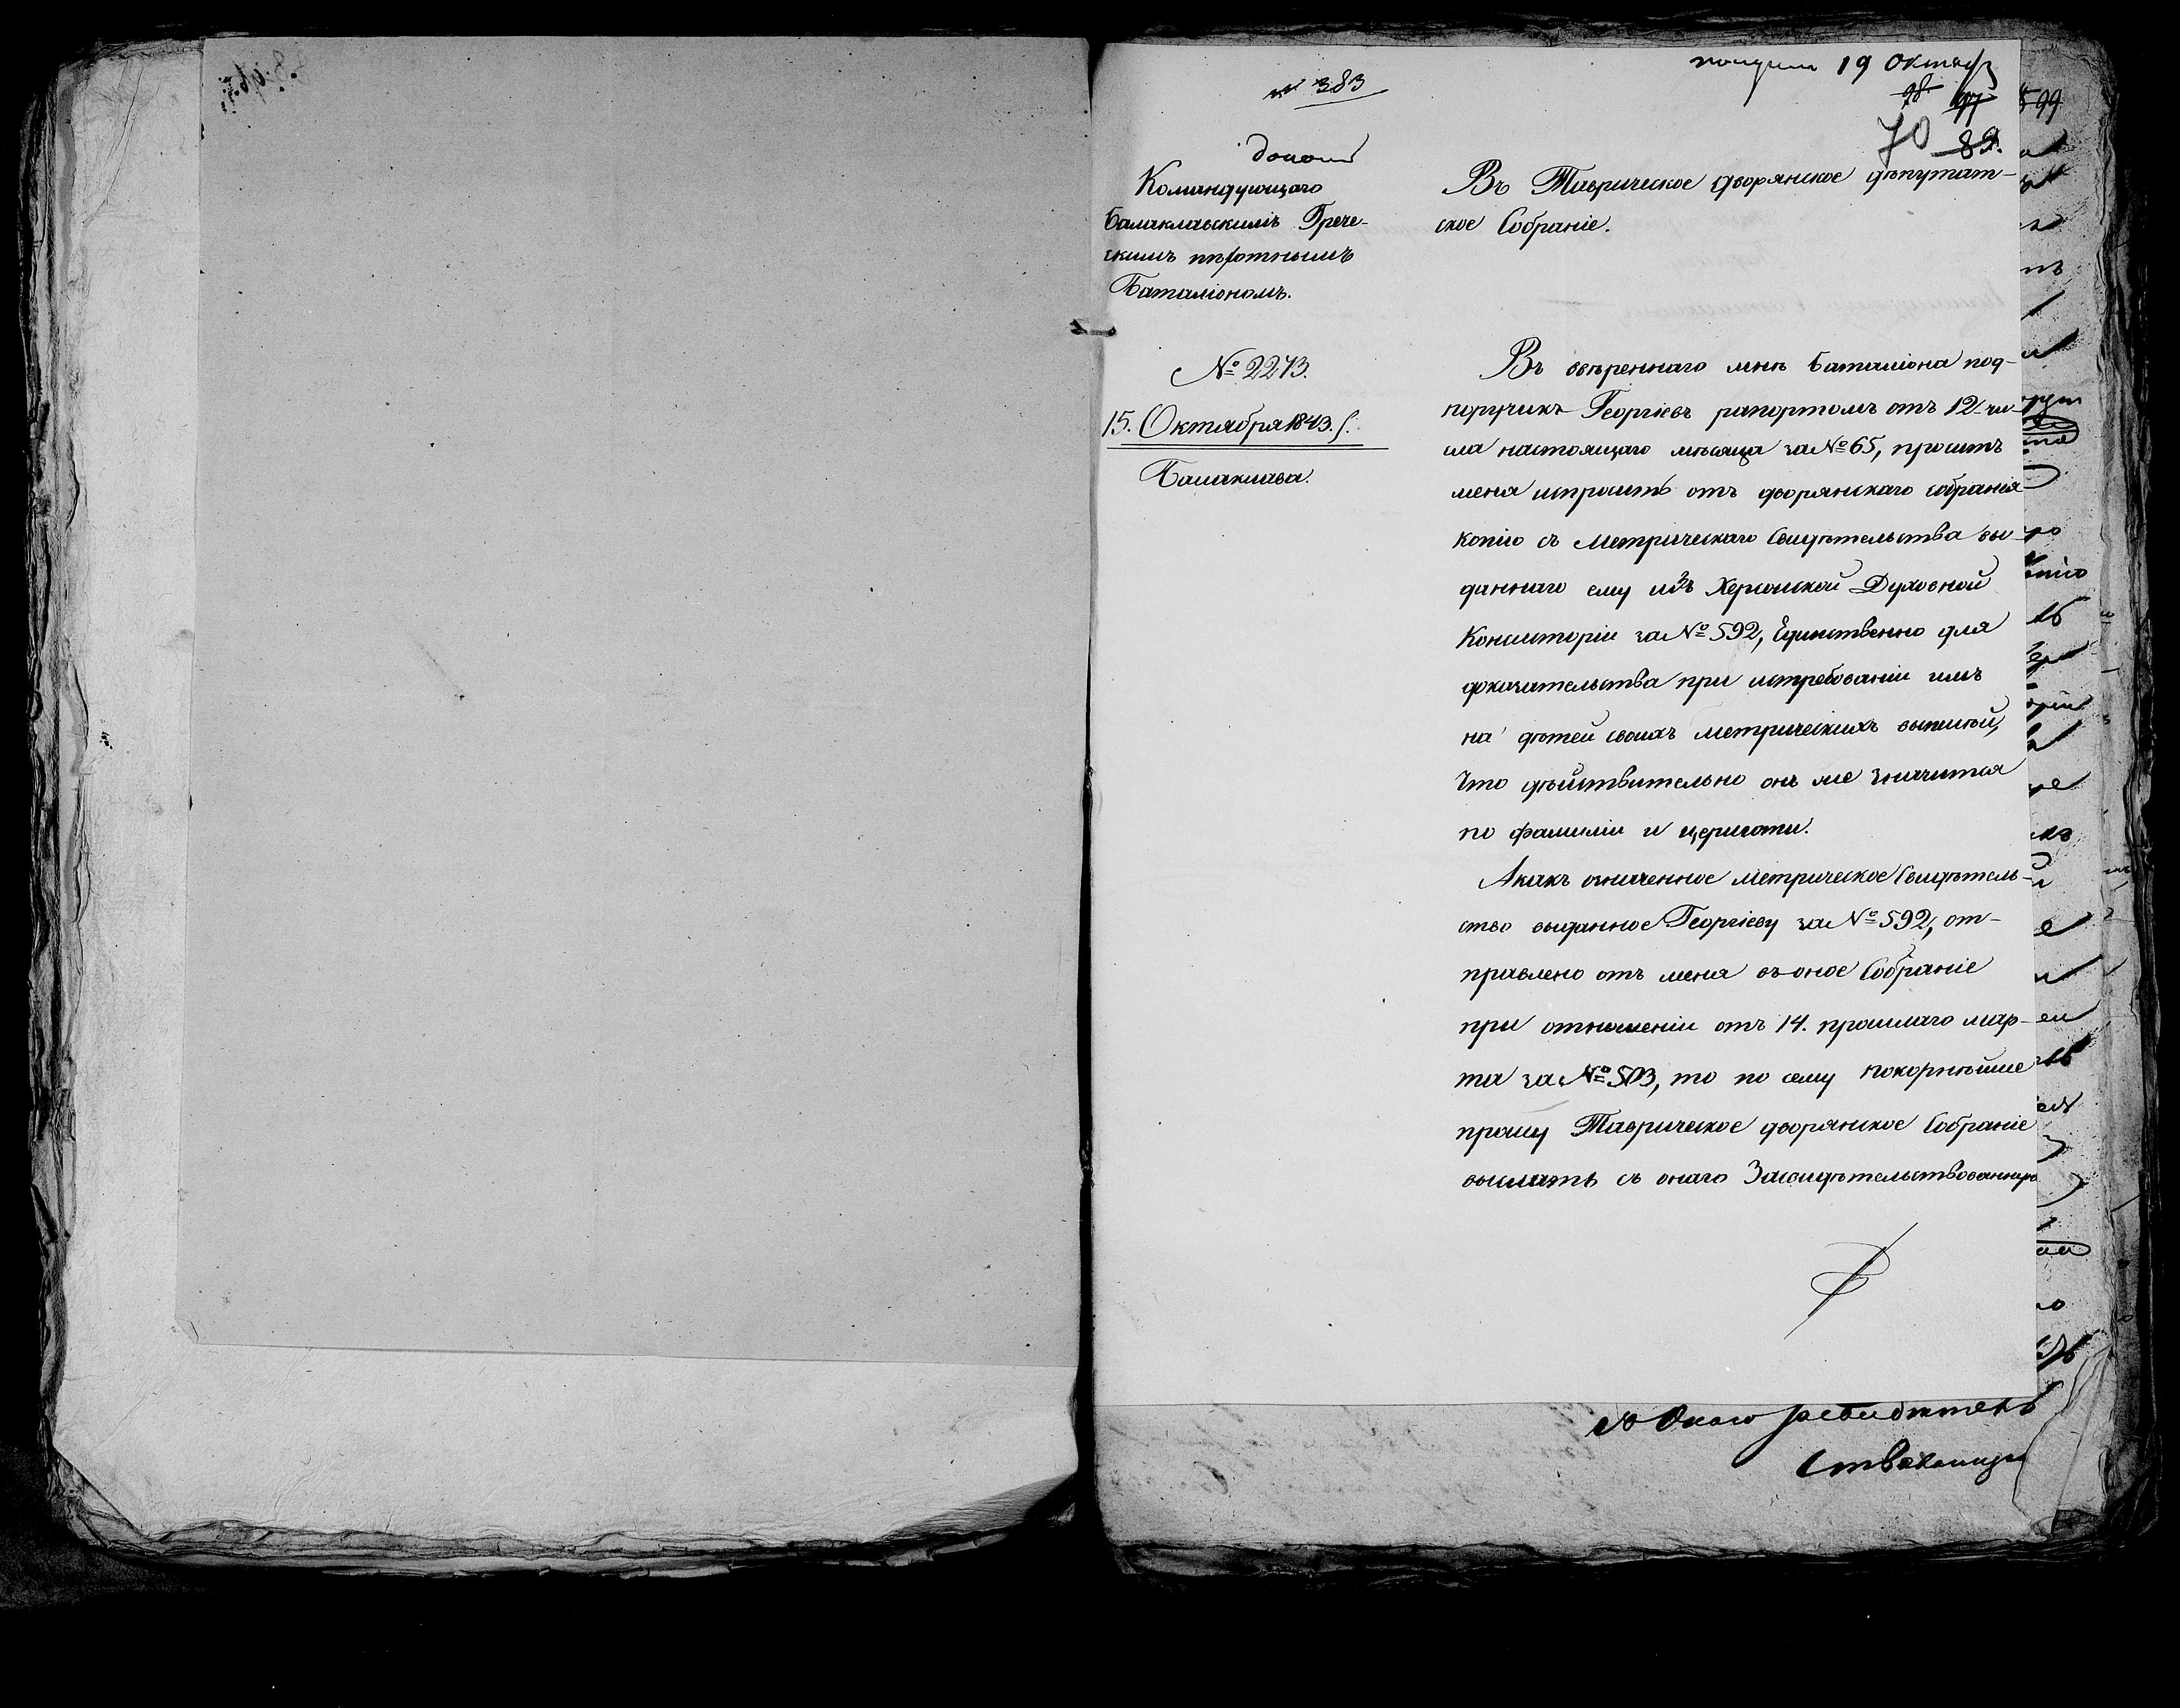 № 383
19 Октябр
98
97
99
70
89.
Командующаго
Балаклавскимъ Грече-
скимъ пѣхотнымъ
Баталіономъ.
№ 2273.
15. Октября 1843. г.
Балаклава.
Въ Таврическое дворянское дѣпутат-
ское Собраніе.
Въ ввѣреннаго мнѣ баталіона под-
поручикъ Георгіевъ рапортомъ отъ 12 чи-
сла настоящаго мѣсяца за № 65, проситъ
меня испросить отъ дворянскаго собранія
копію съ метрическаго Свидѣтельства вы-
даннаго ему изъ Херсонской Духовной
Консисторіи за № 592, Единственно для
доказательства при истребованіи имъ
на дѣтей своихъ метрическихъ выписей,
Что дѣйствительно онъ же значится
по фамиліи и цериготи.
А какъ означенное метрическое Свидѣтель-
ство выданное Георгіеву за № 592, от-
правлено отъ меня въ оное Собраніе
при отношеніи отъ 14. прошлаго мар-
та за № 503, то по сему покорнѣйше
прошу Таврическое дворянское Собраніе
выслать съ онаго Засвидѣтельствованную